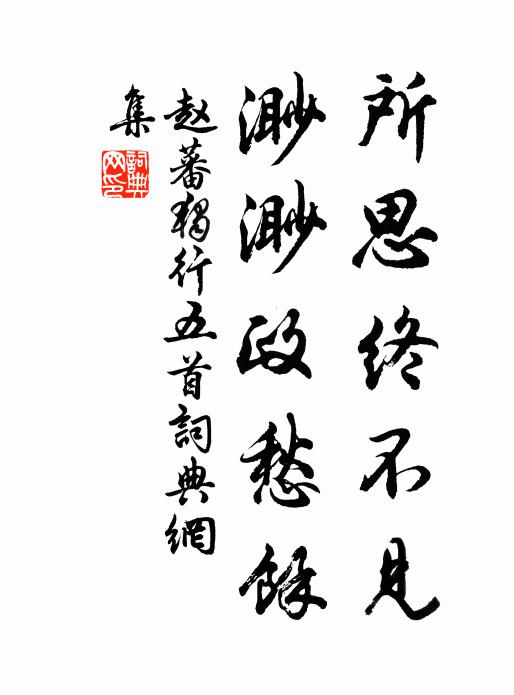 所思终不見
渺渺政愁餘
赵蕃獨行五首詞典網
集
詞典網印